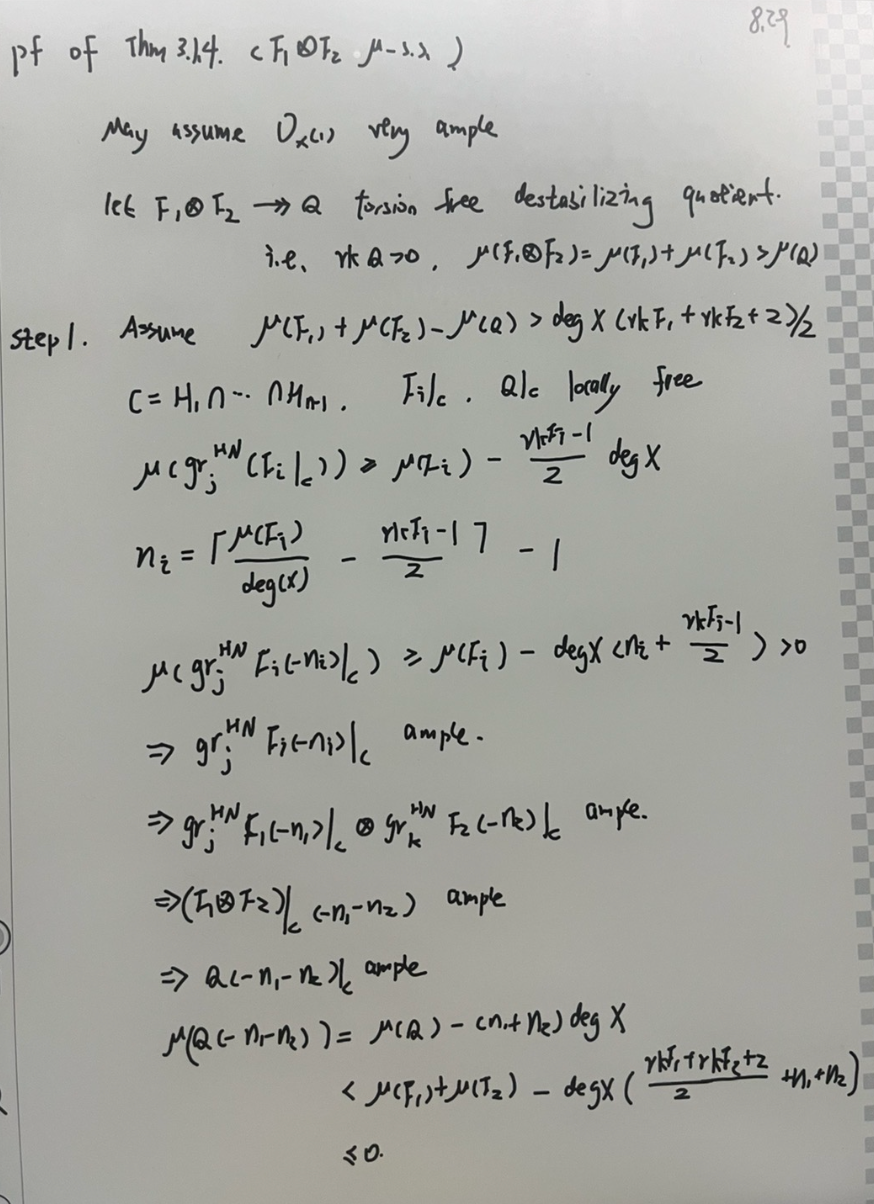 8.29
pf of Thm 3.1.4. (F₁⊗F₂ μ-s.s)
May assume O_X(1) very ample
let F₁⊗F₂ ↠ Q torsion free destabilizing quotient.
i.e, rk Q>0, μ(F₁⊗F₂)=μ(F₁)+μ(F₂)>μ(Q)
step1. Assume μ(F₁)+μ(F₂)-μ(Q) > deg X (rkF₁+rkF₂+2)/2
C=H₁∩⋯∩H_{n-1}. F_i|_C, Q|_C locally free
μ(gr_j^{HN}(F_i|_C)) ≥ μ(F_i) - \frac{rkF_i-1}{2} deg X
n_i = ⌈\frac{μ(F_i)}{deg(X)} - \frac{rkF_i-1}{2}⌉ - 1
μ(gr_j^{HN} F_i(-n_i)|_C) ≥ μ(F_i) - deg X (n_i + \frac{rkF_i-1}{2}) >0
⇒ gr_j^{HN} F_i(-n_i)|_C ample.
⇒ gr_j^{HN} F₁(-n₁)|_C ⊗ gr_k^{HN} F₂(-n₂)|_C ample.
⇒ (F₁⊗F₂)|_C (-n₁-n₂) ample
⇒ Q(-n₁-n₂)|_C ample
μ(Q(-n₁-n₂)) = μ(Q) - (n₁+n₂) deg X
< μ(F₁)+μ(F₂) - deg X (\frac{rkF₁+rkF₂+2}{2} +n₁+n₂)
≤0.